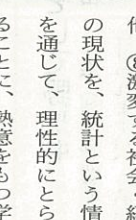 ⑧激変する社会の経
の現状を、統計という情
を通じて、理性的にとら
ることに、熱意をもつ学